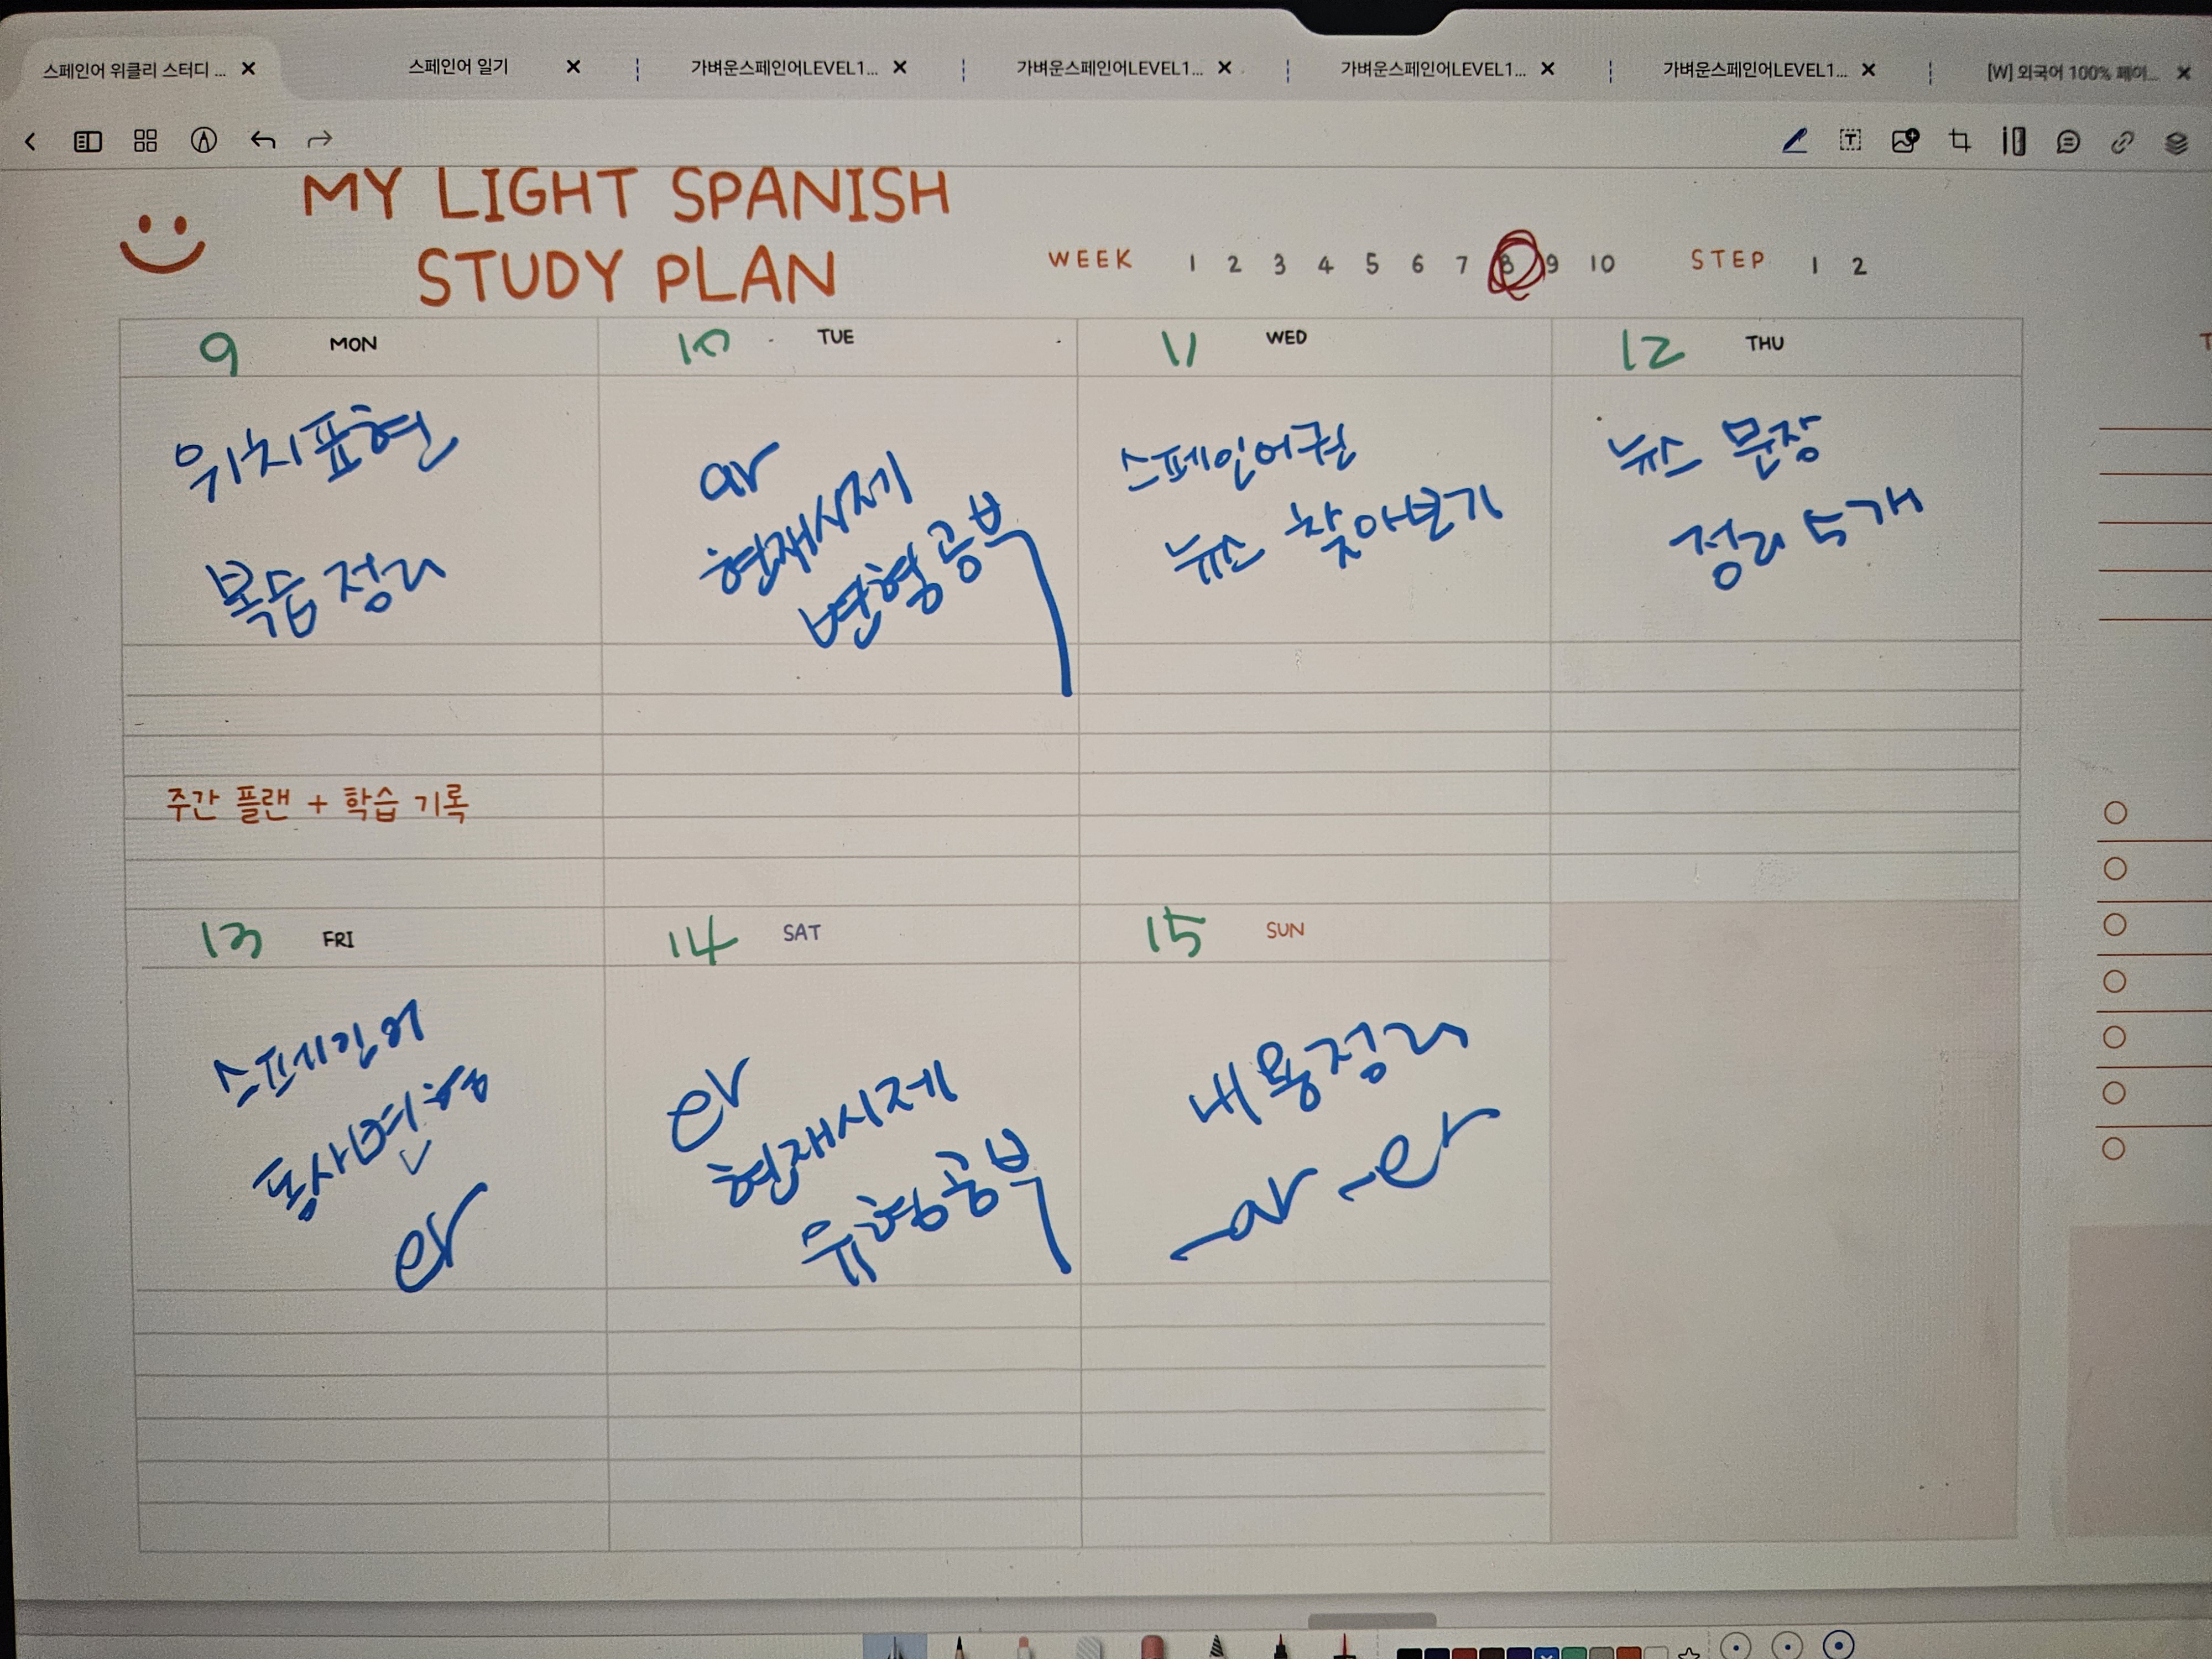 스페인어 위클리 스터디 ...
스페인어 일기
가벼운스페인어LEVEL1...
가벼운스페인어LEVEL1...
가벼운스페인어LEVEL1...
가벼운스페인어LEVEL1...
[W] 외국어 100% 페이...
MY LIGHT SPANISH
STUDY PLAN
WEEK 1 2 3 4 5 6 7 8 9 10 STEP 1 2
9 MON
위치표현
복습 정리
10 TUE
ar
현재시제
변형공부
11 WED
스페인어권
뉴스 찾아보기
12 THU
뉴스 문장
정리 5개
주간 플랜 + 학습 기록
13 FRI
스페인어
동사변형
er
14 SAT
er
현재시제
유형공부
15 SUN
내용정리
-ar -er
T